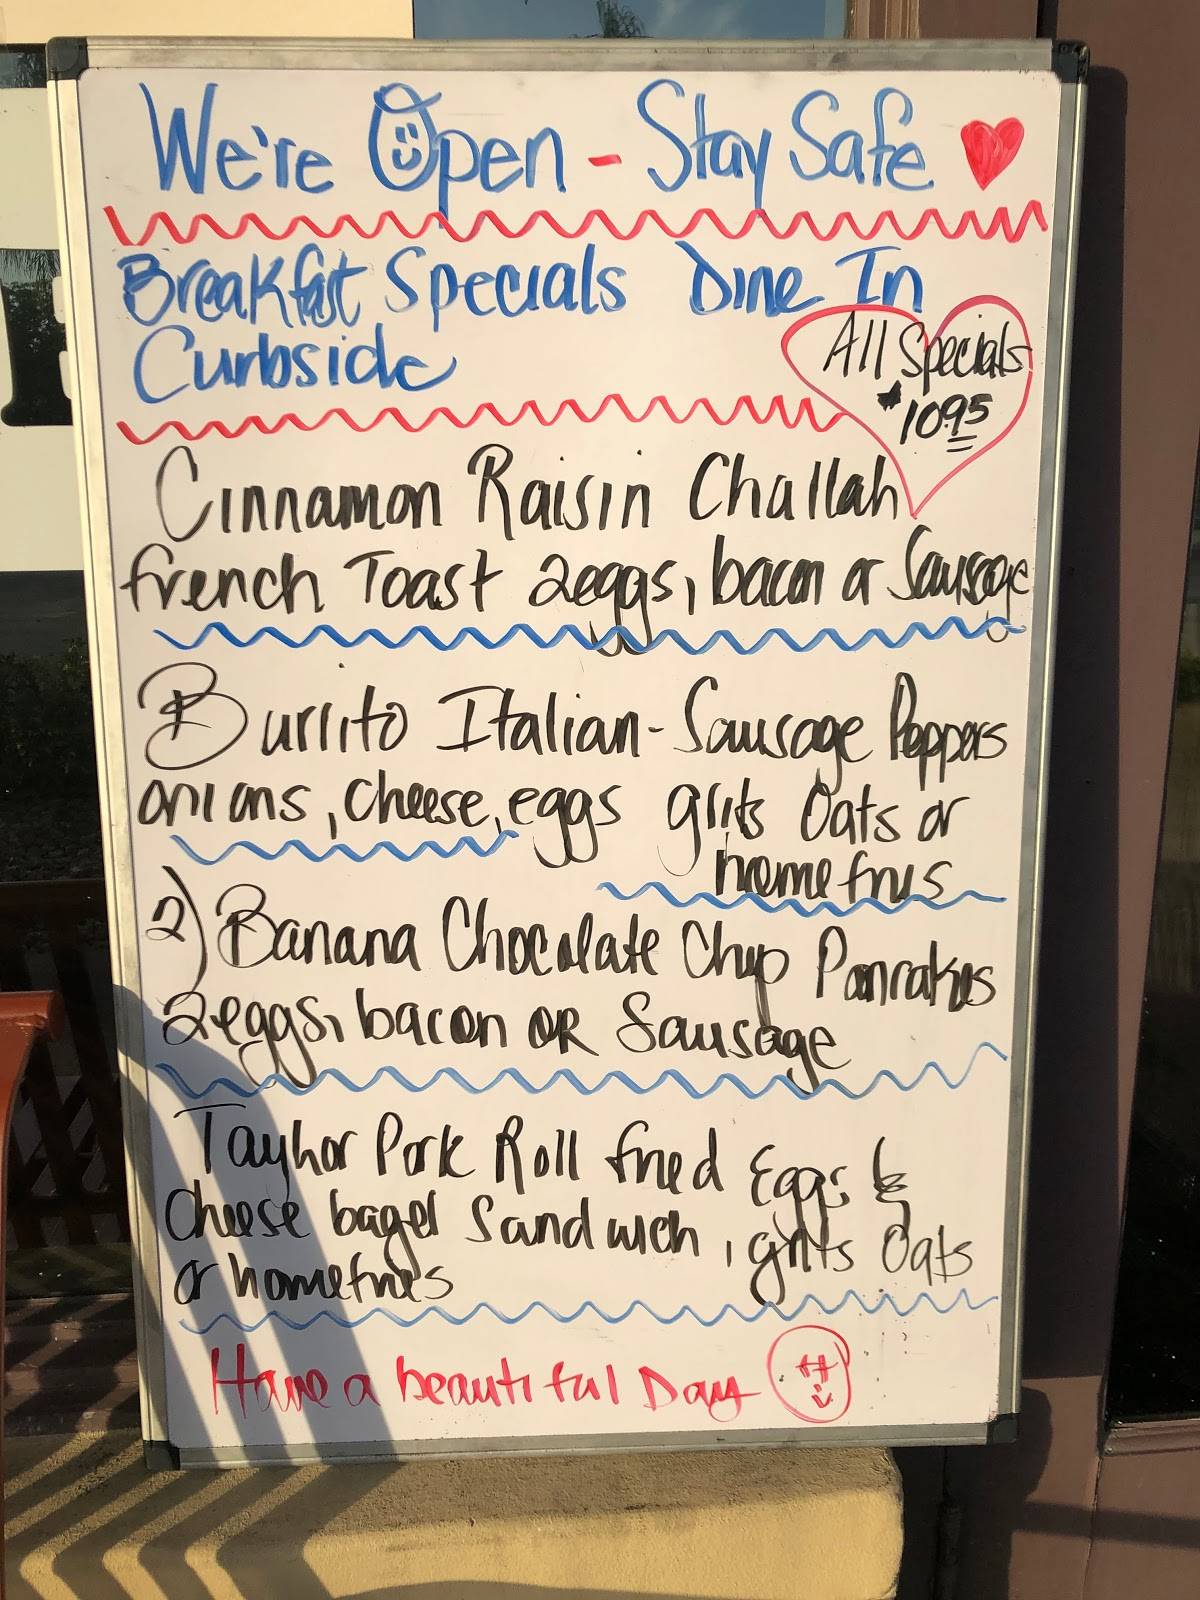 We're Open - Stay Safe
Breakfast Specials Dine In
Curbside
All Specials
$10.95
Cinnamon Raisin Challah
french Toast 2eggs, bacon or Sausage
Burrito Italian-Sausage Peppers
onions, cheese, eggs grits Oats or
homefries
2) Banana Chocolate Chip Pancakes
2eggs, bacon OR Sausage
Taylor Pork Roll fried Eggs &
Cheese bagel Sandwich, grits Oats
or homefries
Have a beautiful Day